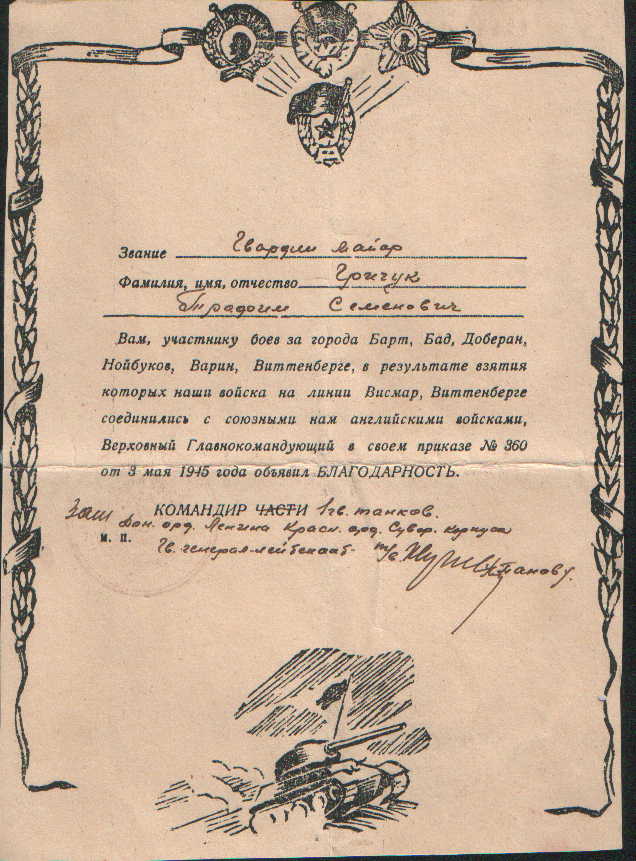 Звание Гвардии майор
Фамилия, имя, отчество Гричук
Трафим Семенович
Вам, участнику боев за города Барт, Бад, Доберан,
Нойбуков, Варин, Виттенберге, в результате взятия
которых наши войска на линии Висмар, Виттенберге
соединились с союзными нам английскими войсками,
Верховный Главнокомандующий в своем приказе № 360
от 3 мая 1945 года объявил БЛАГОДАРНОСТЬ.
Зам КОМАНДИР ЧАСТИ 1 гв. танков.
Дон. орд. Ленина Красн. орд. Сувор. корпуса
м. п. Гв. генерал-лейтенант